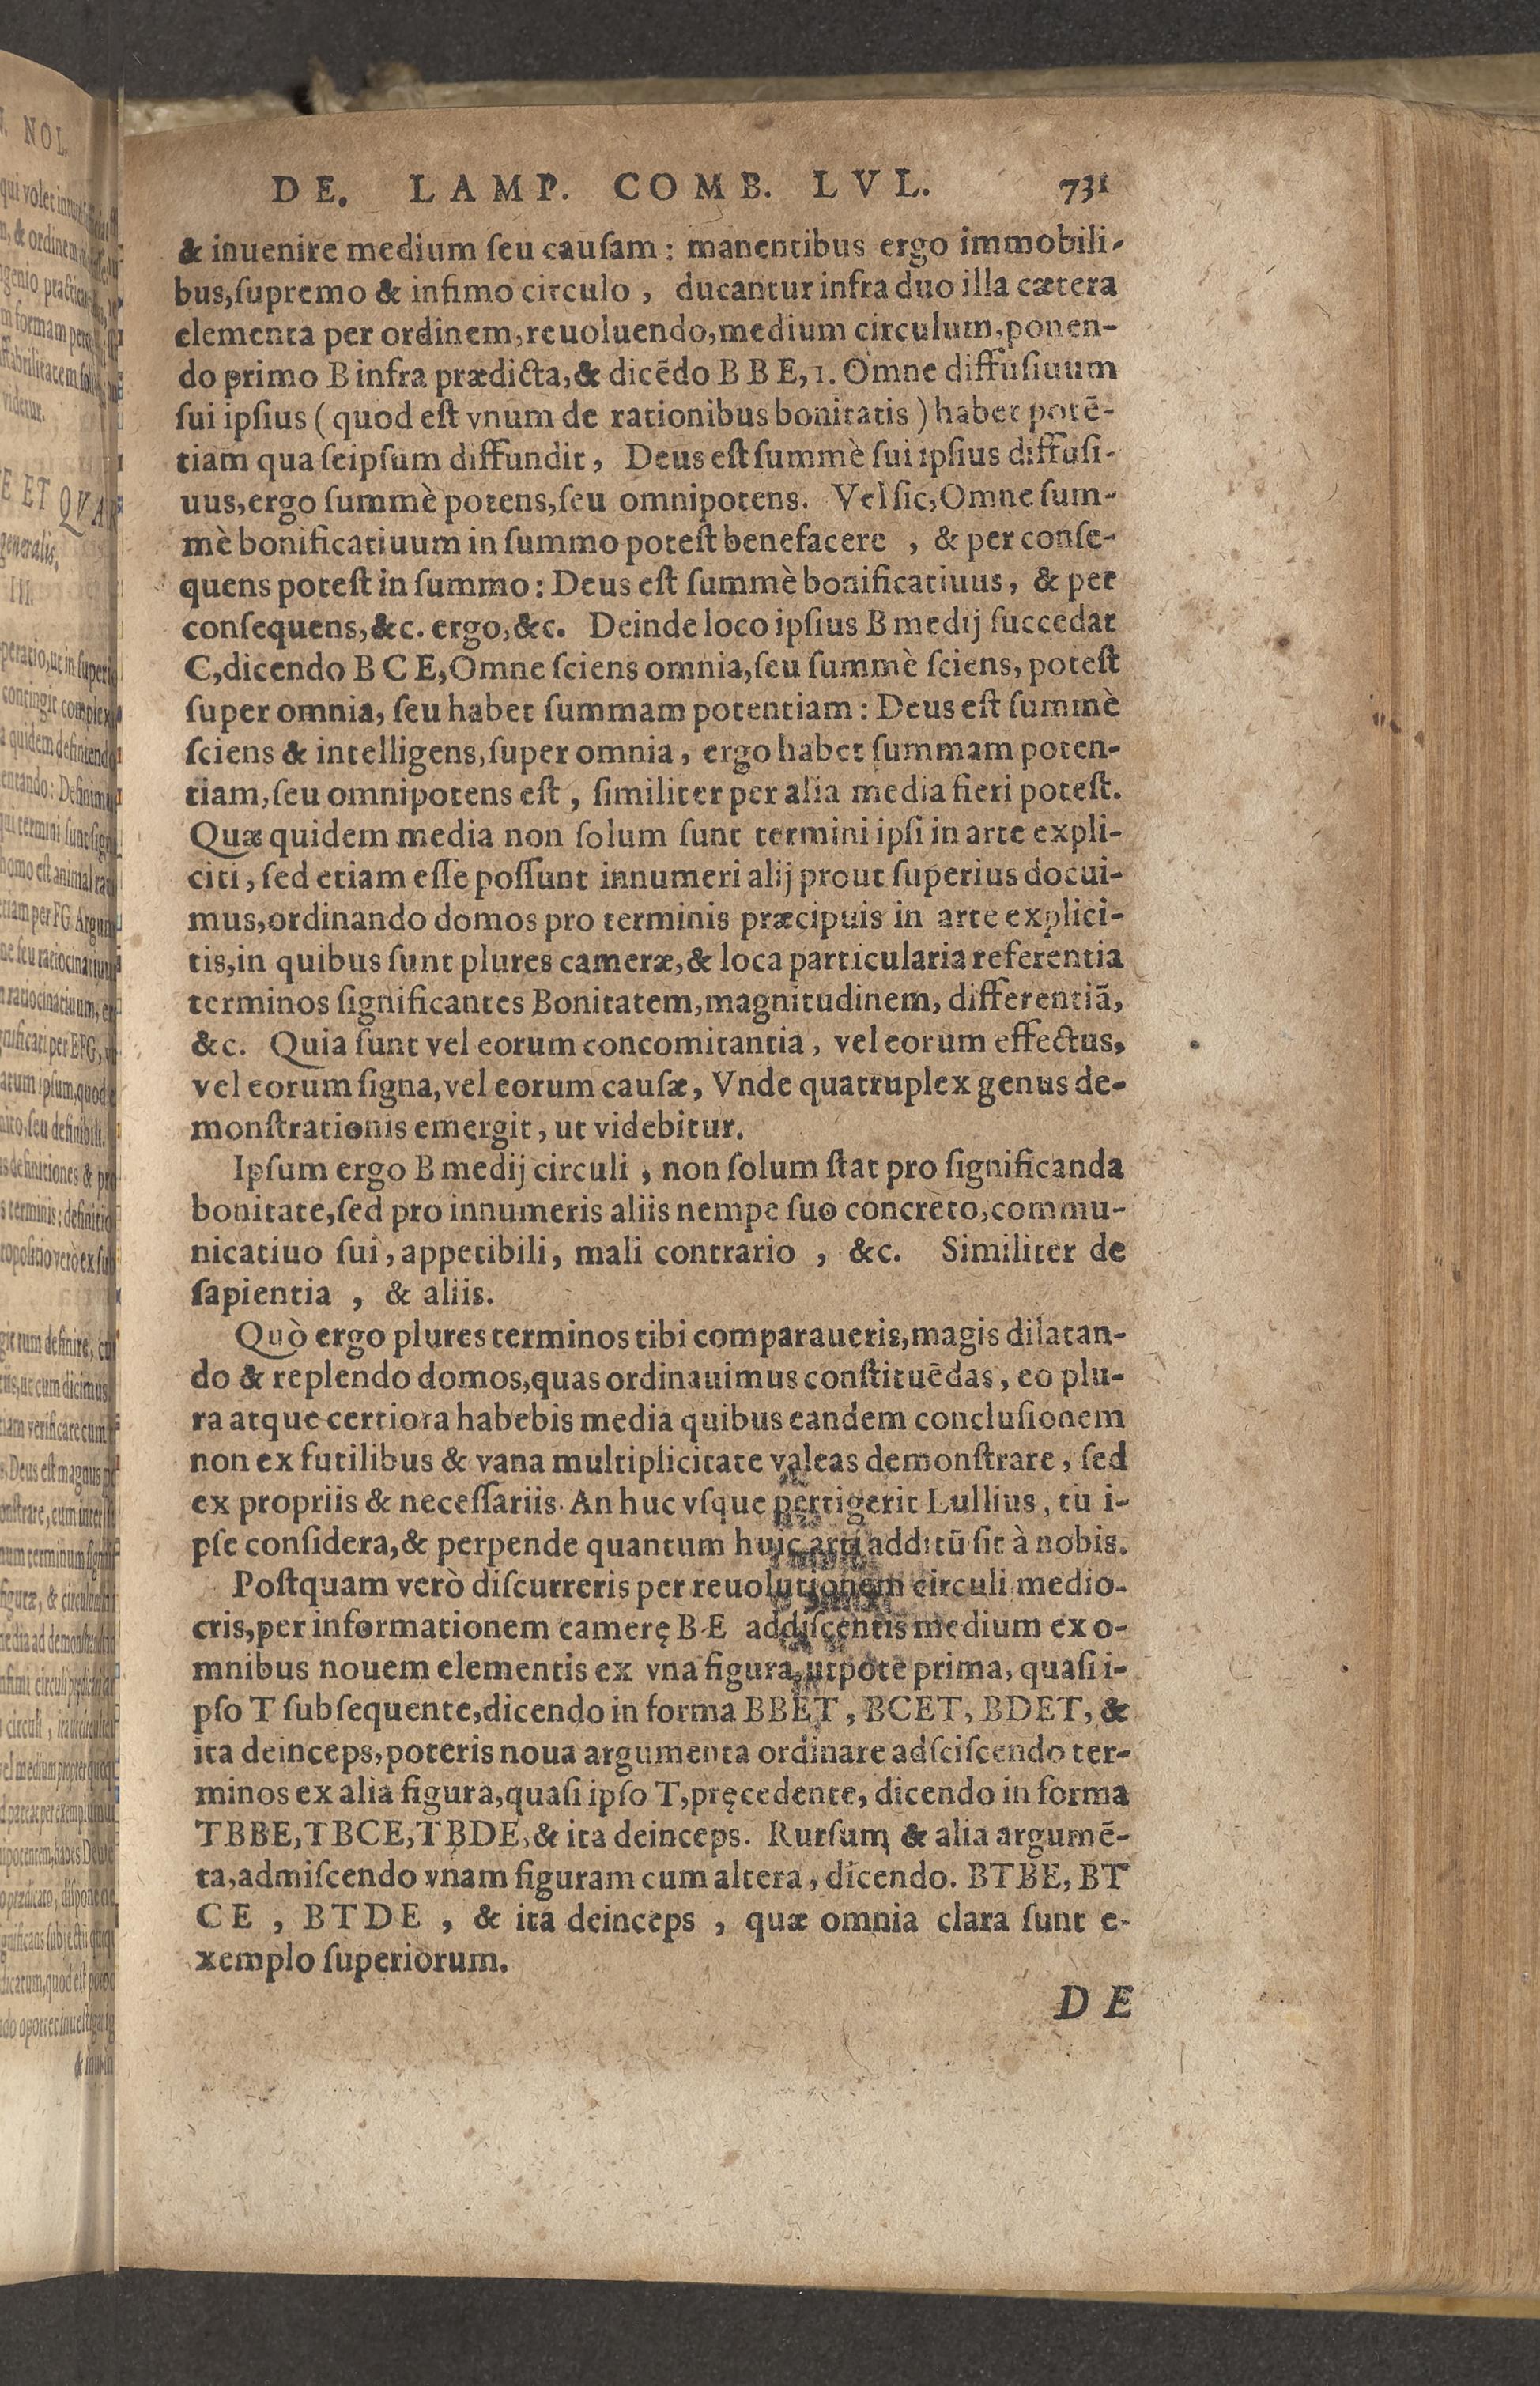 DE. LAMP. COMB. LVL. 731
& inuenire medium ſeu cauſam : manentibus ergo immobili-
bus, ſupremo & infimo circulo , ducantur infra duo illa cætera
elementa per ordinem, reuoluendo, medium circulum, ponen-
do primo B infra prædicta, & dicẽdo B B E, 1. Omne diffuſiuum
ſui ipſius ( quod eſt vnum de rationibus bonitatis ) habet potẽ-
tiam qua ſeipſum diffundit, Deus eſt ſummè ſui ipſius diffuſi-
uus, ergo ſummè potens, ſeu omnipotens. Vel ſic, Omne ſum-
mè bonificatiuum in ſummo poteſt benefacere , & per conſe-
quens poteſt in ſummo : Deus eſt ſummè bonificatiuus, & per
conſequens, &c. ergo, &c. Deinde loco ipſius B medij ſuccedat
C, dicendo B C E, Omne ſciens omnia, ſeu ſummè ſciens, poteſt
ſuper omnia, ſeu habet ſummam potentiam : Deus eſt ſummè
ſciens & intelligens, ſuper omnia, ergo habet ſummam poten-
tiam, ſeu omnipotens eſt, ſimiliter per alia media fieri poteſt.
Quæ quidem media non ſolum ſunt termini ipſi in arte expli-
citi, ſed etiam eſſe poſſunt innumeri alij prout ſuperius docui-
mus, ordinando domos pro terminis præcipuis in arte explici-
tis, in quibus ſunt plures cameræ, & loca particularia referentia
terminos ſignificantes Bonitatem, magnitudinem, differentiã,
&c. Quia ſunt vel eorum concomitantia, vel eorum effectus,
vel eorum ſigna, vel eorum cauſæ, Vnde quatruplex genus de-
monſtrationis emergit, ut videbitur.
Ipſum ergo B medij circuli , non ſolum ſtat pro ſignificanda
bonitate, ſed pro innumeris aliis nempe ſuo concrèto, commu-
nicatiuo ſui, appetibili, mali contrario , &c. Similiter de
ſapientia , & aliis.
Quò ergo plures terminos tibi comparaueris, magis dilatan-
do & replendo domos, quas ordinauimus conſtituẽdas, eo plu-
ra atque certiora habebis media quibus eandem concluſionem
non ex futilibus & vana multiplicitate valeas demonſtrare, ſed
ex propriis & neceſſariis. An huc vſque pertigerit Lullius, tu i-
pſe conſidera, & perpende quantum huic arti additũ ſit à nobis.
Poſtquam verò diſcurreris per reuolutionem circuli medio-
cris, per informationem camerę B E addiſcentis medium ex o-
mnibus nouem elementis ex vna figura, utpote prima, quaſi i-
pſo T ſubſequente, dicendo in forma BBET, BCET, BDET, &
ita deinceps, poteris noua argumenta ordinare adſciſcendo ter-
minos ex alia figura, quaſi ipſo T, pręcedente, dicendo in forma
TBBE, TBCE, TBDE, & ita deinceps. Rurſum & alia argumẽ-
ta, admiſcendo vnam figuram cum altera, dicendo. BTBE, BT
CE , BTDE , & ita deinceps , quæ omnia clara ſunt e-
xemplo ſuperiorum.
DE